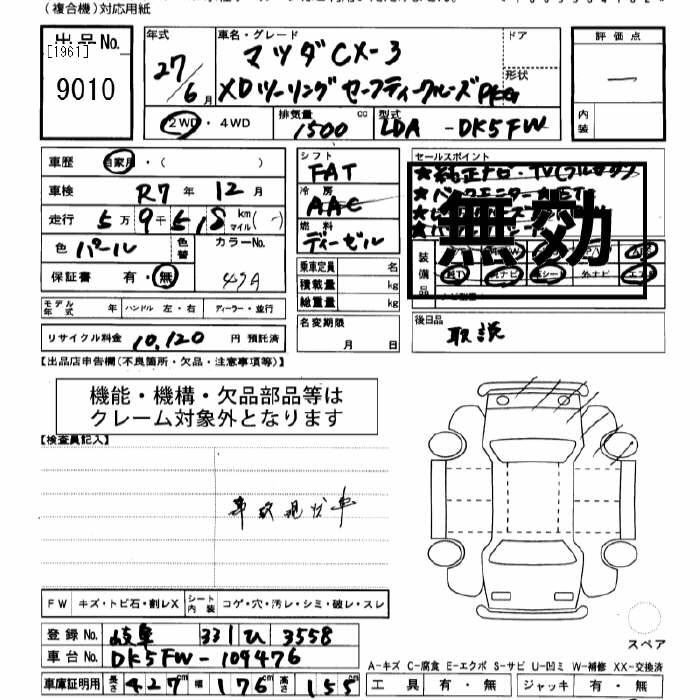 (複合機)対応用紙
出品No.
[1961]
9010
年式
27/6月
車名・グレード
マツダCX-3
XDツーリング セーフティークルーズPKG
ドア
形状
評価点
内装
2WD・4WD
排気量
1500 cc
型式
LDA - DK5FW
車歴
自家用・( )
車検
R7年12月
走行
5万9千518km(-)
マイル
色
パール
色替
カラーNo.
47A
保証書
有・無
モデル年式
年
ハンドル 左・右
ディーラー・並行
リサイクル料金 10,120 円 預託済
シフト
FAT
冷房
AAC
燃料
ディーゼル
乗車定員 名
積載量 kg
総重量 kg
名変期限
月 日
セールスポイント
無効
装備品
後日品
取説
【出品店申告欄(不良箇所・欠品・注意事項等)】
機能・機構・欠品部品等は
クレーム対象外となります
【検査員記入】
事故現状車
FW キズ・トビ石・割レX
シート内装 コゲ・穴・汚レ・シミ・破レ・スレ
登録No. 岐阜 331 ひ 3558
車台No. DK5FW-109476
車庫証明用 長さ 427cm 幅 176cm 高さ 155cm
スペア
A-キズ C-腐食 E-エクボ S-サビ U-凹ミ W-補修 XX-交換済
工具 有・無 ジャッキ 有・無